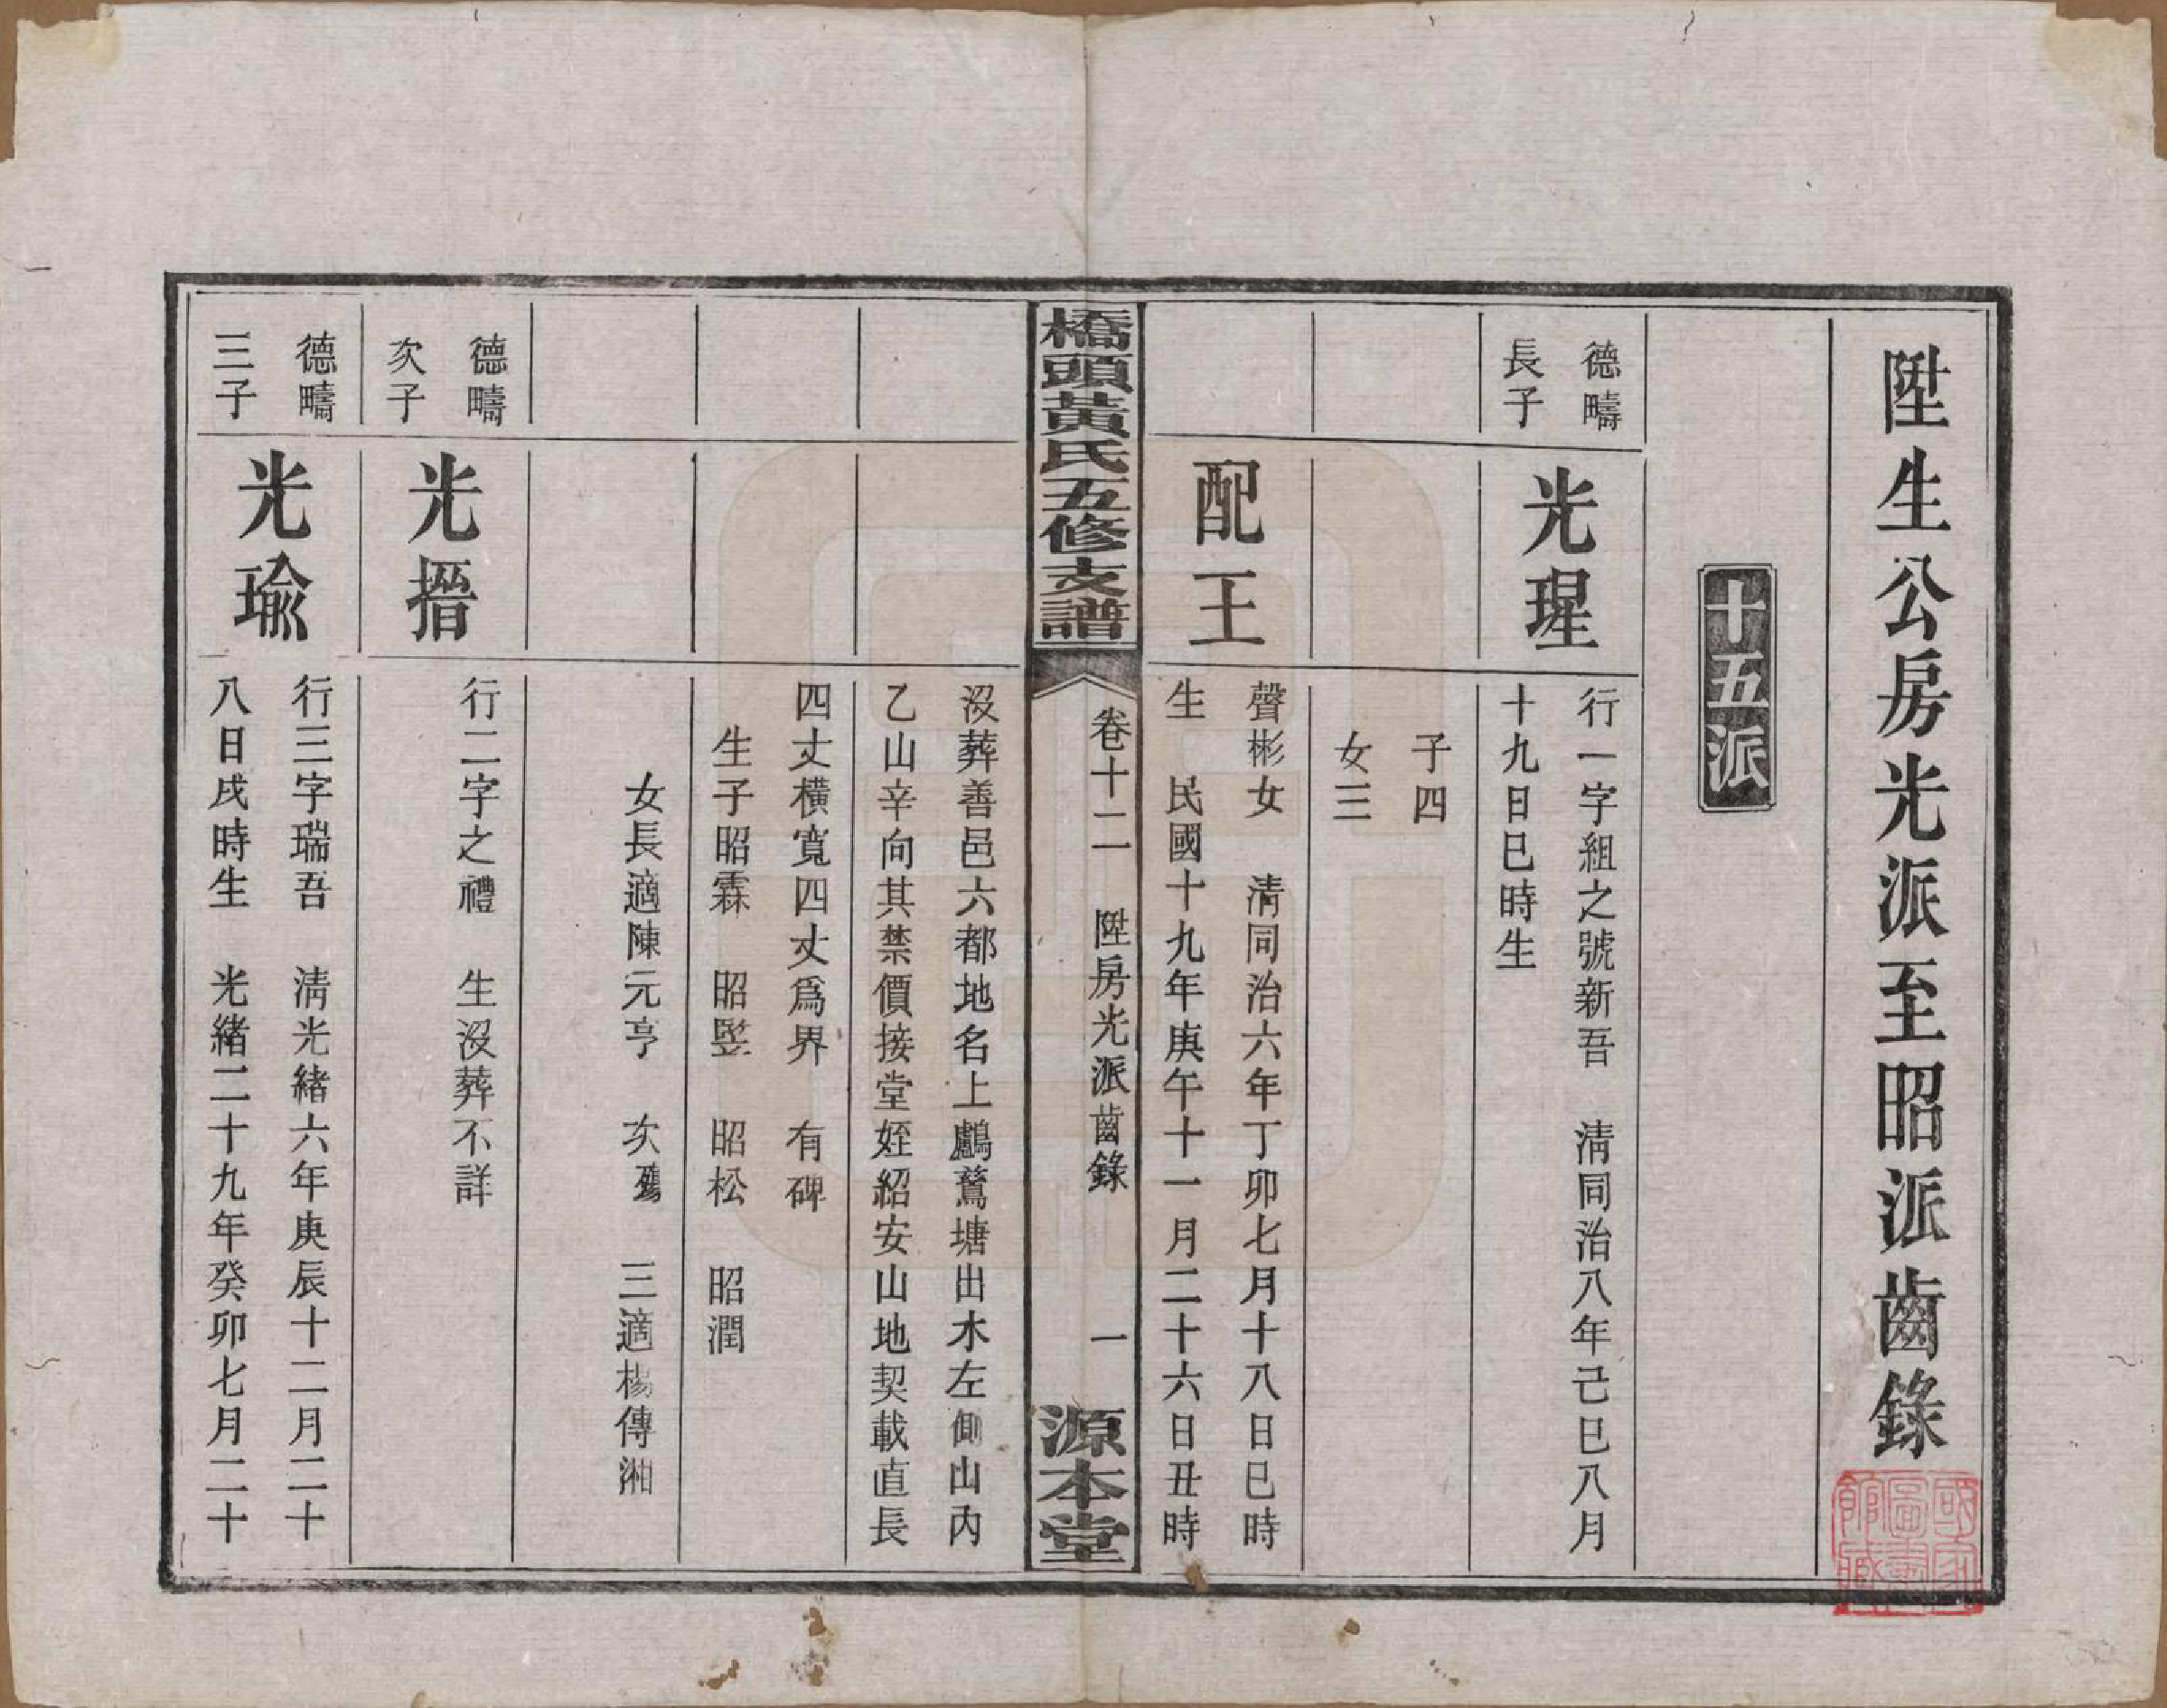 陞生公房光派至昭派齒錄
十五派
德疇
長子
光瑆
行一字組之號新吾　淸同治八年己巳八月
十九日巳時生
子四
女三
配王
聲彬女　淸同治六年丁卯七月十八日巳時
生　民國十九年庚午十一月二十六日丑時
橋頭黃氏五修支譜
卷十二　陞房光派齒錄
一
源本堂
沒葬善邑六都地名上鸕鶿塘出水左側山內
乙山辛向其禁價接堂姪紹安山地契載直長
四丈橫寬四丈爲界　有碑
生子昭霖　昭竪　昭松　昭潤
女長適陳元亨　次殤　三適楊傳湘
德疇
次子
光搢
行二字之禮　生沒葬不詳
德疇
三子
光瑜
行三字瑞吾　淸光緒六年庚辰十二月二十
八日戌時生　光緒二十九年癸卯七月二十
國家
圖書
館藏